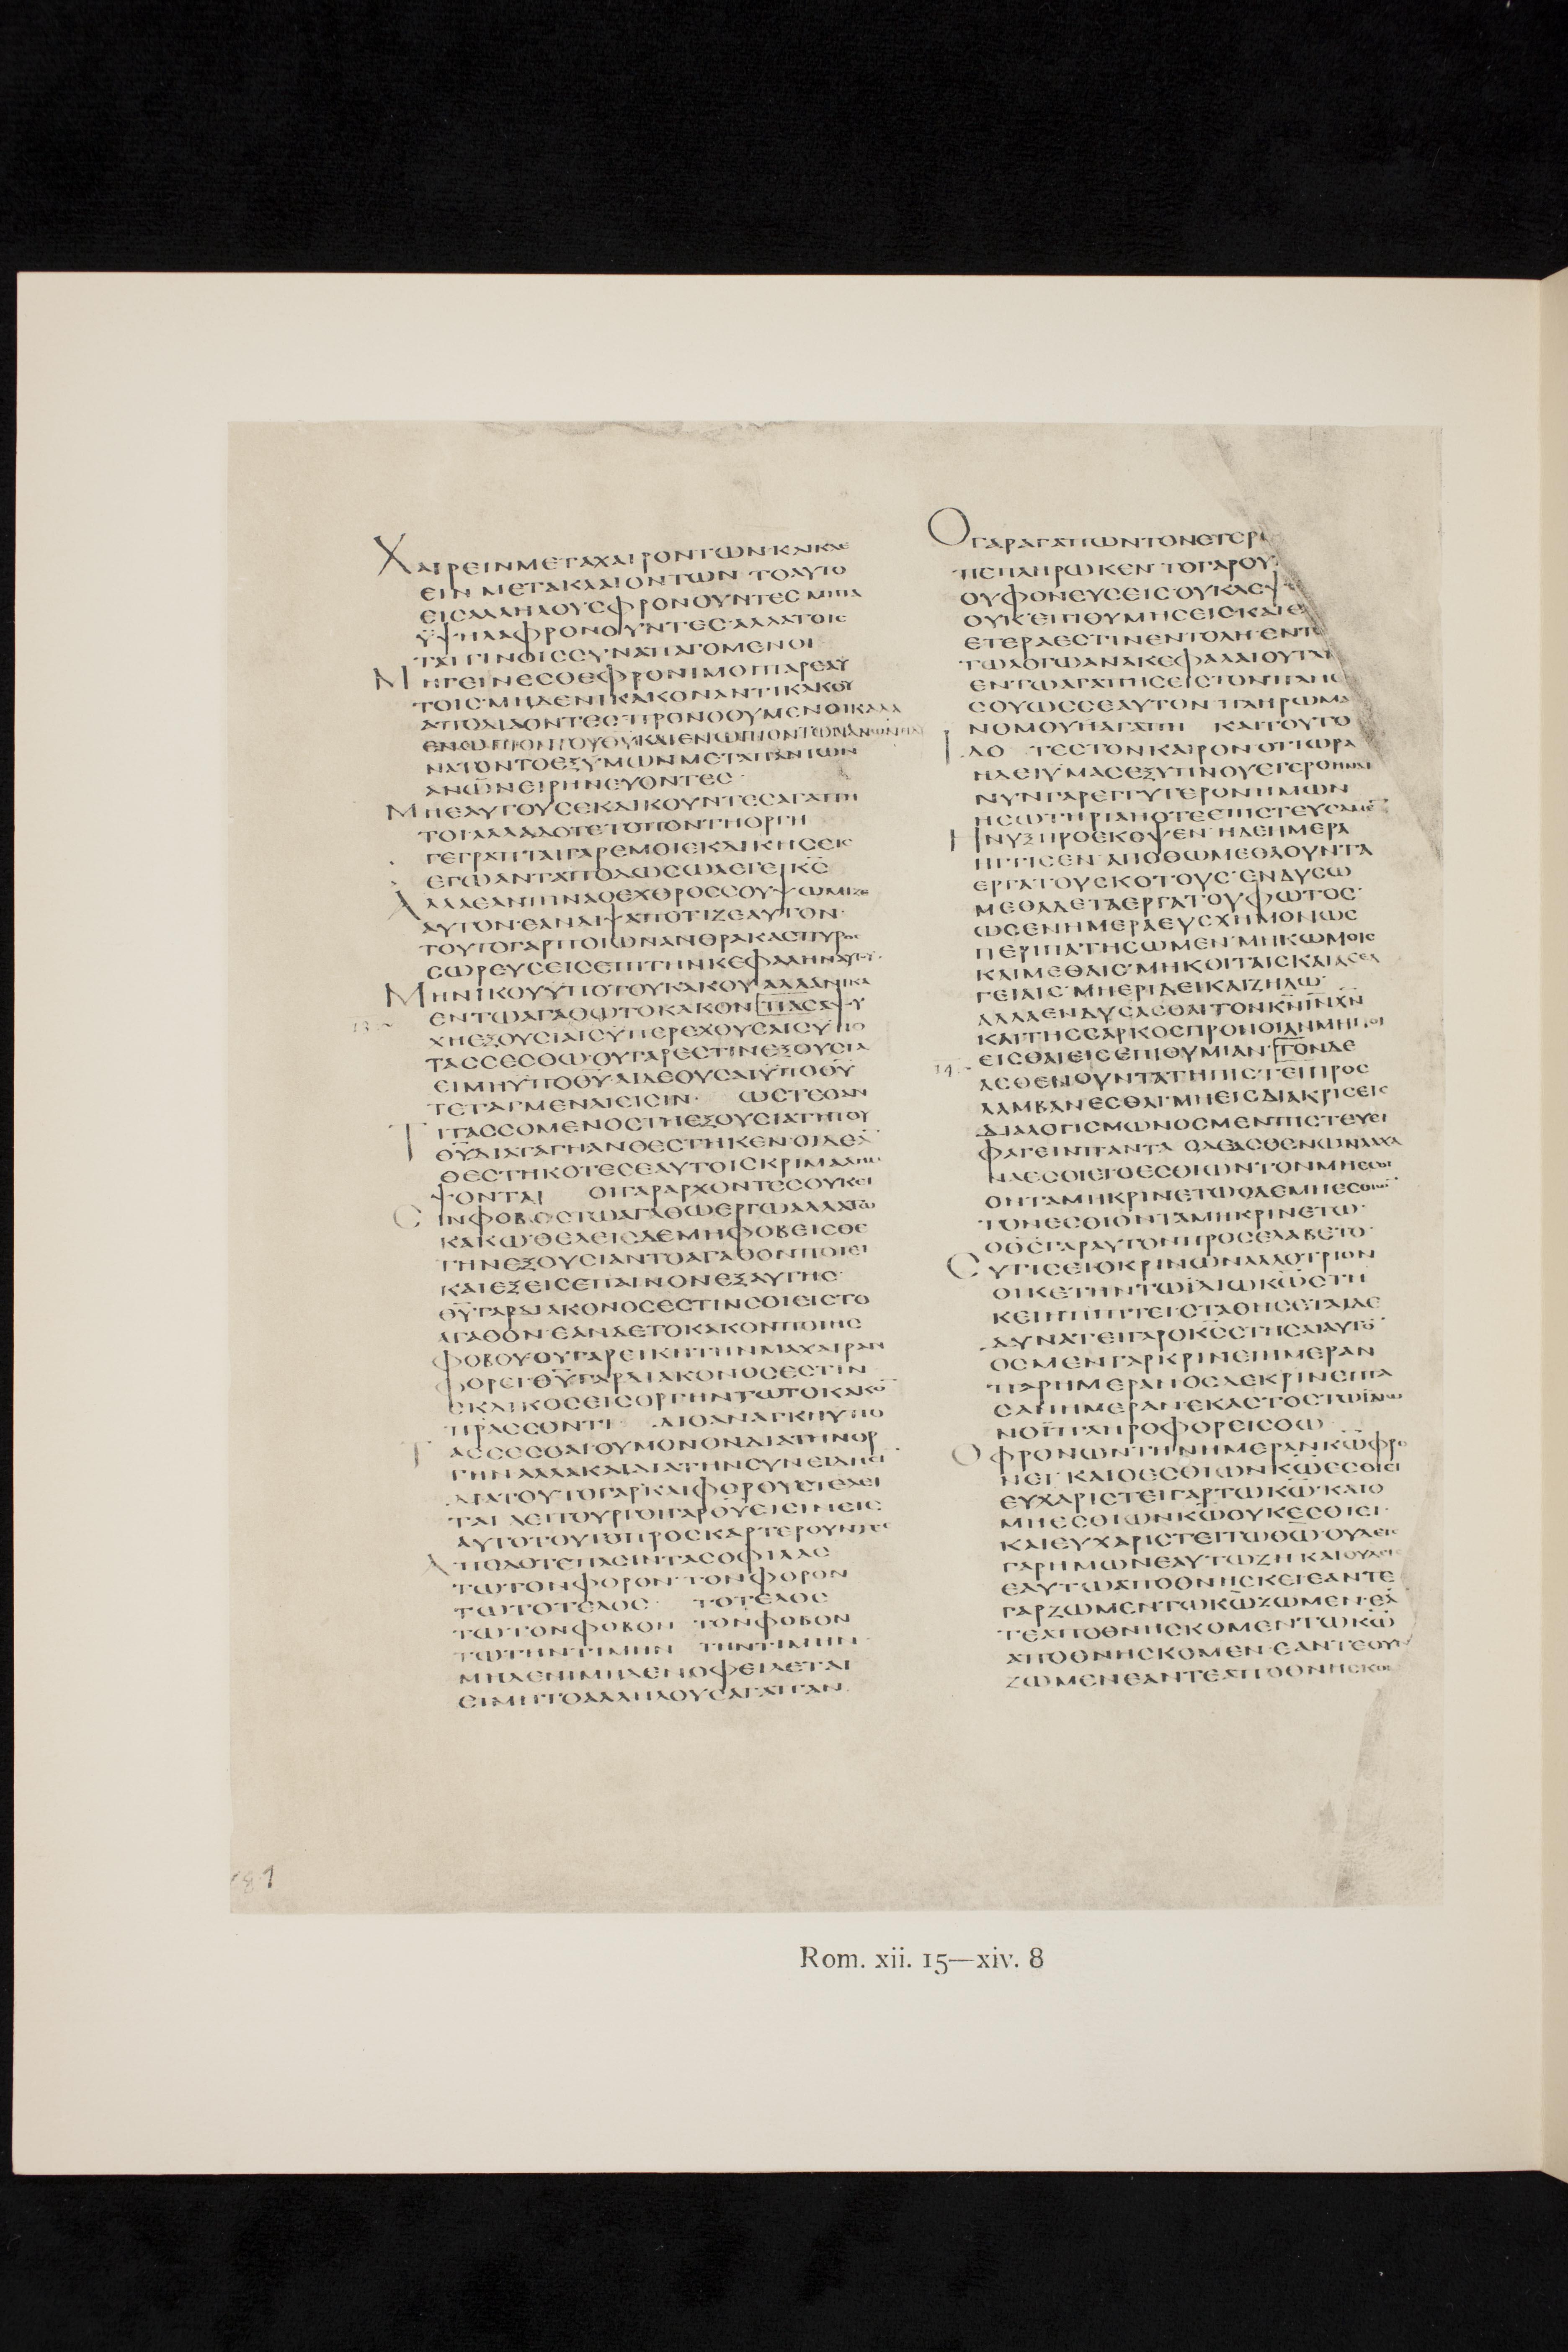 ΧΑΙΡΕΙΝΜΕΤΑΧΑΙΡΟΝΤΩΝΚΑΙΚΛΑΙ
ΕΙΝΜΕΤΑΚΛΑΙΟΝΤΩΝ ΤΟΑΥΤΟ
ΕΙϹΑΛΛΗΛΟΥϹΦΡΟΝΟΥΝΤΕϹ ΜΗΤΑ
ΥΨΗΛΑΦΡΟΝΟΥΝΤΕϹ·ΑΛΛΑΤΟΙϹ
ΤΑΠΙΝΟΙϹϹΥΝΑΠΑΓΟΜΕΝΟΙ
ΜΗΓΕΙΝΕϹΘΕΦΡΟΝΙΜΟΙΠΑΡΕΑΥ
ΤΟΙϹ·ΜΗΔΕΝΙΚΑΚΟΝΑΝΤΙΚΑΚΟΥ
ΑΠΟΔΙΔΟΝΤΕϹ·ΠΡΟΝΟΟΥΜΕΝΟΙΚΑΛΑ
ΕΝΩΠΙΟΝΤΟΥΘΥΚΑΙΕΝΩΠΙΟΝΤΩΝΑΝΩΝ
ΝΑΤΟΝΤΟΕΞΥΜΩΝΜΕΤΑΠΑΝΤΩΝ
ΑΝΩΝΕΙΡΗΝΕΥΟΝΤΕϹ·
ΜΗΕΑΥΤΟΥϹΕΚΔΙΚΟΥΝΤΕϹΑΓΑΠΗ
ΤΟΙΑΛΛΑΔΟΤΕΤΟΠΟΝΤΗΟΡΓΗ
ΓΕΓΡΑΠΤΑΙΓΑΡΕΜΟΙΕΚΔΙΚΗϹΕΙϹ
ΕΓΩΑΝΤΑΠΟΔΩϹΩΛΕΓΕΙΚϹ
ΑΛΛΑΕΑΝΠΙΝΑΟΕΧΘΡΟϹϹΟΥΨΩΜΙΖΕ
ΑΥΤΟΝ·ΕΑΝΔΙΨΑΠΟΤΙΖΕΑΥΤΟΝ·
ΤΟΥΤΟΓΑΡΠΟΙΩΝΑΝΘΡΑΚΑϹΠΥΡΟϹ
ϹΩΡΕΥϹΕΙϹΕΠΙΤΗΝΚΕΦΑΛΗΝΑΥΤΟΥ·
ΜΗΝΙΚΟΥΥΠΟΤΟΥΚΑΚΟΥΑΛΛΑΝΙΚΑ
ΕΝΤΩΑΓΑΘΩΤΟΚΑΚΟΝ ΠΑϹΑΨΥ
13.
ΧΗΕΞΟΥϹΙΑΙϹΥΠΕΡΕΧΟΥϹΑΙϹΥΠΟ
ΤΑϹϹΕϹΘΩ·ΟΥΓΑΡΕϹΤΙΝΕΞΟΥϹΙΑ
ΕΙΜΗΥΠΟΘΥ·ΑΙΔΕΟΥϹΑΙΥΠΟΘΥ
ΤΕΤΑΓΜΕΝΑΙΕΙϹΙΝ· ΩϹΤΕΟΑΝ
ΤΙΤΑϹϹΟΜΕΝΟϹΤΗΕΞΟΥϹΙΑΤΗΤΟΥ
ΘΥΔΙΑΤΑΓΗΑΝΘΕϹΤΗΚΕΝ·ΟΙΔΕΑ
ΘΕϹΤΗΚΟΤΕϹΕΑΥΤΟΙϹΚΡΙΜΑΛΗΜ
ΨΟΝΤΑΙ ΟΙΓΑΡΑΡΧΟΝΤΕϹΟΥΚΕΙ
ϹΙΝΦΟΒΟϹΤΩΑΓΑΘΩΕΡΓΩΑΛΛΑΤΩ
ΚΑΚΩ·ΘΕΛΕΙϹΔΕΜΗΦΟΒΕΙϹΘΕ
ΤΗΝΕΞΟΥϹΙΑΝΤΟΑΓΑΘΟΝΠΟΙΕΙ
ΚΑΙΕΞΕΙϹΕΠΑΙΝΟΝΕΞΑΥΤΗϹ·
ΘΥΓΑΡΔΙΑΚΟΝΟϹΕϹΤΙΝϹΟΙΕΙϹΤΟ
ΑΓΑΘΟΝ·ΕΑΝΔΕΤΟΚΑΚΟΝΠΟΙΗϹ
ΦΟΒΟΥ·ΟΥΓΑΡΕΙΚΗΤΗΝΜΑΧΑΙΡΑΝ
ΦΟΡΕΙ·ΘΥΓΑΡΔΙΑΚΟΝΟϹΕϹΤΙΝ
ΕΚΔΙΚΟϹΕΙϹΟΡΓΗΝΤΩΤΟΚΑΚΟ
ΠΡΑϹϹΟΝΤΙ· ΔΙΟΑΝΑΓΚΗΥΠΟ
ΤΑϹϹΕϹΘΑΙΟΥΜΟΝΟΝΔΙΑΤΗΝΟΡ
ΓΗΝΑΛΛΑΚΑΙΔΙΑΤΗΝϹΥΝΕΙΔΗϹΙ
ΔΙΑΤΟΥΤΟΓΑΡΚΑΙΦΟΡΟΥϹΤΕΛΕΙ
ΤΑΙ ΛΕΙΤΟΥΡΓΟΙΓΑΡΘΥΕΙϹΙΝΕΙϹ
ΑΥΤΟΤΟΥΤΟΠΡΟϹΚΑΡΤΕΡΟΥΝΤΕϹ
ΑΠΟΔΟΤΕΠΑϹΙΝΤΑϹΟΦΙΛΑϹ
ΤΩΤΟΝΦΟΡΟΝ·ΤΟΝΦΟΡΟΝ
ΤΩΤΟΤΕΛΟϹ· ΤΟΤΕΛΟϹ
ΤΩΤΟΝΦΟΒΟΝ ΤΟΝΦΟΒΟΝ
ΤΩΤΗΝΤΙΜΗΝ ΤΗΝΤΙΜΗΝ·
ΜΗΔΕΝΙΜΗΔΕΝΟΦΕΙΛΕΤΑΙ
ΕΙΜΗΤΟΑΛΛΗΛΟΥϹΑΓΑΠΑΝ·
ΟΓΑΡΑΓΑΠΩΝΤΟΝΕΤΕΡ
ΠΕΠΛΗΡΩΚΕΝ·ΤΟΓΑΡΟΥ
ΟΥΦΟΝΕΥϹΕΙϹ·ΟΥΚΛΕΨ
ΟΥΚΕΠΙΘΥΜΗϹΕΙϹ·ΚΑΙΕ
ΕΤΕΡΑΕϹΤΙΝΕΝΤΟΛΗ·ΕΝΤ
ΤΩΛΟΓΩΑΝΑΚΕΦΑΛΑΙΟΥΤΑΙ
ΕΝΤΩΑΓΑΠΗϹΕΙϹΤΟΝΠΛΗϹ
ϹΟΥΩϹϹΕΑΥΤΟΝ·ΠΛΗΡΩΜΑ
ΝΟΜΟΥΗΑΓΑΠΗ ΚΑΙΤΟΥΤΟ
ΙΔΟ ΤΕϹΤΟΝΚΑΙΡΟΝΟΤΙΩΡΑ
ΗΔΕΙΥΜΑϹΕΞΥΠΝΟΥΕΓΕΡΘΗΝΑΙ
ΝΥΝΓΑΡΕΓΓΥΤΕΡΟΝΗΜΩΝ
ΗϹΩΤΗΡΙΑΗΟΤΕΕΠΙϹΤΕΥϹΑΜΕ
ΗΝΥΞΠΡΟΕΚΟΨΕΝ·ΗΔΕΗΜΕΡΑ
ΗΓΓΙϹΕΝ·ΑΠΟΘΩΜΕΘΑΟΥΝΤΑ
ΕΡΓΑΤΟΥϹΚΟΤΟΥϹ·ΕΝΔΥϹΩ
ΜΕΘΑΔΕΤΑΕΡΓΑΤΟΥΦΩΤΟϹ·
ΩϹΕΝΗΜΕΡΑΕΥϹΧΗΜΟΝΩϹ
ΠΕΡΙΠΑΤΗϹΩΜΕΝ·ΜΗΚΩΜΟΙϹ
ΚΑΙΜΕΘΑΙϹ·ΜΗΚΟΙΤΑΙϹΚΑΙΑϹΕΛ
ΓΕΙΑΙϹ·ΜΗΕΡΙΔΕΙΚΑΙΖΗΛΩ·
ΑΛΛΑΕΝΔΥϹΑϹΘΑΙΤΟΝΚΝΙΝΧΝ
ΚΑΙΤΗϹϹΑΡΚΟϹΠΡΟΝΟΙΑΝΜΗΠΟΙ
ΕΙϹΘΑΙΕΙϹΕΠΙΘΥΜΙΑΝ·ΤΟΝΔΕ
14.
ΑϹΘΕΝΟΥΝΤΑΤΗΠΙϹΤΕΙΠΡΟϹ
ΛΑΜΒΑΝΕϹΘΑΙ·ΜΗΕΙϹΔΙΑΚΡΙϹΕΙϹ
ΔΙΑΛΟΓΙϹΜΩΝΟϹΜΕΝΠΙϹΤΕΥΕΙ
ΦΑΓΕΙΝΠΑΝΤΑ ΟΔΕΑϹΘΕΝΩΝΛΑΧΑ
ΝΑΕϹΘΙΕΙΟΕϹΘΙΩΝΤΟΝΜΗΕϹΘΙ
ΟΝΤΑΜΗΚΡΙΝΕΤΩΟΔΕΜΗΕϹΘΙΩΝ
ΤΟΝΕϹΘΙΟΝΤΑΜΗΚΡΙΝΕΤΩ·
ΟΘϹΓΑΡΑΥΤΟΝΠΡΟϹΕΛΑΒΕΤΟ·
ϹΥΤΙϹΕΙΟΚΡΙΝΩΝΑΛΛΟΤΡΙΟΝ
ΟΙΚΕΤΗΝΤΩΙΔΙΩΚΩϹΤΗ
ΚΕΙΗΠΙΠΤΕΙϹΤΑΘΗϹΕΤΑΙΔΕ
ΔΥΝΑΤΕΙΓΑΡΟΚϹϹΤΗϹΑΙΑΥΤΟ
ΟϹΜΕΝΓΑΡΚΡΙΝΕΙΗΜΕΡΑΝ
ΠΑΡΗΜΕΡΑΝΟϹΔΕΚΡΙΝΕΙΠΑ
ϹΑΝΗΜΕΡΑΝ·ΕΚΑϹΤΟϹΤΩΙΔΙΩ
ΝΟΙΠΛΗΡΟΦΟΡΕΙϹΘΩ
ΟΦΡΟΝΩΝΤΗΝΗΜΕΡΑΝΚΩΦΡΟ
ΝΕΙ·ΚΑΙΟΕϹΘΙΩΝΚΩΕϹΘΙΕΙ
ΕΥΧΑΡΙϹΤΕΙΓΑΡΤΩΚΩ·ΚΑΙΟ
ΜΗΕϹΘΙΩΝΚΩΟΥΚΕϹΘΙΕΙ·
ΚΑΙΕΥΧΑΡΙϹΤΕΙΤΩΘΩ·ΟΥΔΕΙϹ
ΓΑΡΗΜΩΝΕΑΥΤΩΖΗΚΑΙΟΥΔΕΙϹ
ΕΑΥΤΩΑΠΟΘΝΗϹΚΕΙ·ΕΑΝΤΕ
ΓΑΡΖΩΜΕΝΤΩΚΩΖΩΜΕΝ·ΕΑ
ΤΕΑΠΟΘΝΗϹΚΟΜΕΝΤΩΚΩ
ΑΠΟΘΝΗϹΚΟΜΕΝ·ΕΑΝΤΕΟΥΝ
ΖΩΜΕΝΕΑΝΤΕΑΠΟΘΝΗϹΚΟ
Rom. xii. 15—xiv. 8